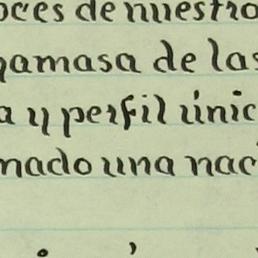 oces de nuestro
gamasa de las
a y perfil únic
nado una nac